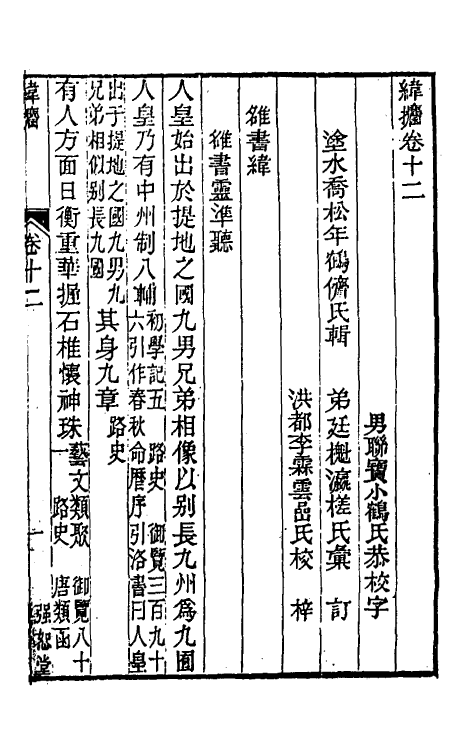 緯攟卷十二
男聯寶小鶴氏恭校字
塗水喬松年鶴儕氏輯 弟廷櫆瀛槎氏彙 訂
洪都李霖雲喦氏校 梓
雒書緯
雒書靈準聽
人皇始出於提地之國九男兄弟相像以别長九州爲九囿
人皇乃有中州制八輔
初學記五 路史 御覽三百九十
六引作春秋命厤序引洛書曰人皇
出于提地之國九男九
兄弟相似别長九國
其身九章 路史
有人方面日衡重華握石椎懷神珠
藝文類聚 御覽八十
一 路史 唐類函
緯攟 卷十二 一 強恕堂